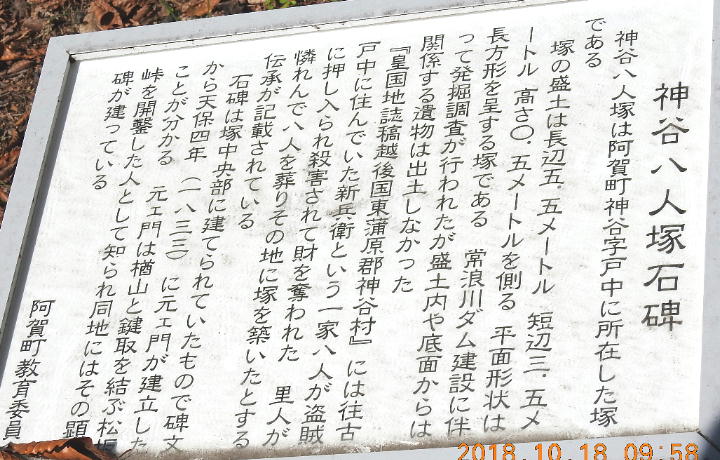 神谷八人塚石碑
神谷八人塚は阿賀町神谷字戸中に所在した塚
である
塚の盛土は長辺五.五メートル 短辺三.五メ
ートル 高さ〇.五メートルを側る 平面形状は
長方形を呈する塚である 常浪川ダム建設に伴
って発掘調査が行われたが盛土内や底面からは
関係する遺物は出土しなかった
『皇国地誌稿越後国東蒲原郡神谷村』には往古
戸中に住んでいた新兵衛という一家八人が盗賊
に押し入られ殺害されて財を奪われた 里人が
憐れんで八人を葬りその地に塚を築いたとする
伝承が記載されている
石碑は塚中央部に建てられていたもので碑文
から天保四年(一八三三)に元ェ門が建立した
ことが分かる 元ェ門は楢山と鍵取を結ぶ松
峠を開鑿した人として知られ同地にはその顕
碑が建っている
阿賀町教育委員
2018.10.18 09:58